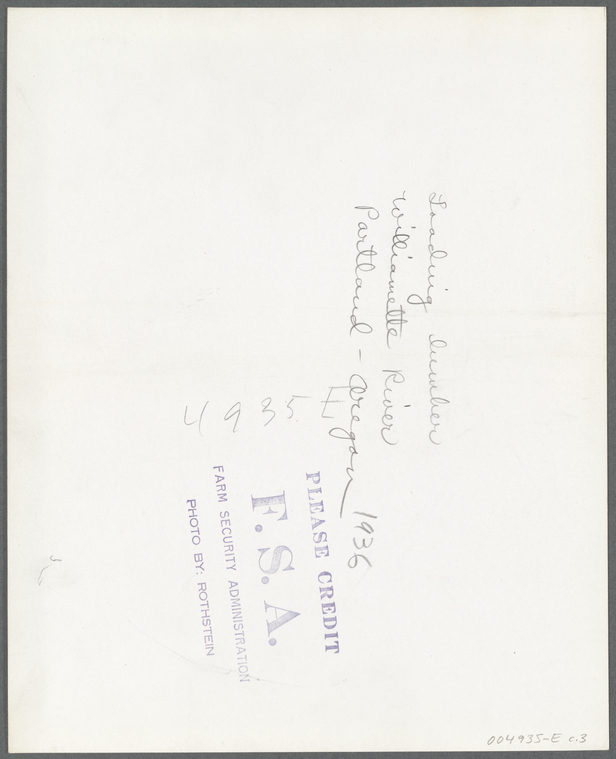 Loading lumber
Williamette River
Portland - Oregon 1936
4935 E
PLEASE CREDIT
F. S. A.
FARM SECURITY ADMINISTRATION
PHOTO BY: ROTHSTEIN
004935-E c.3